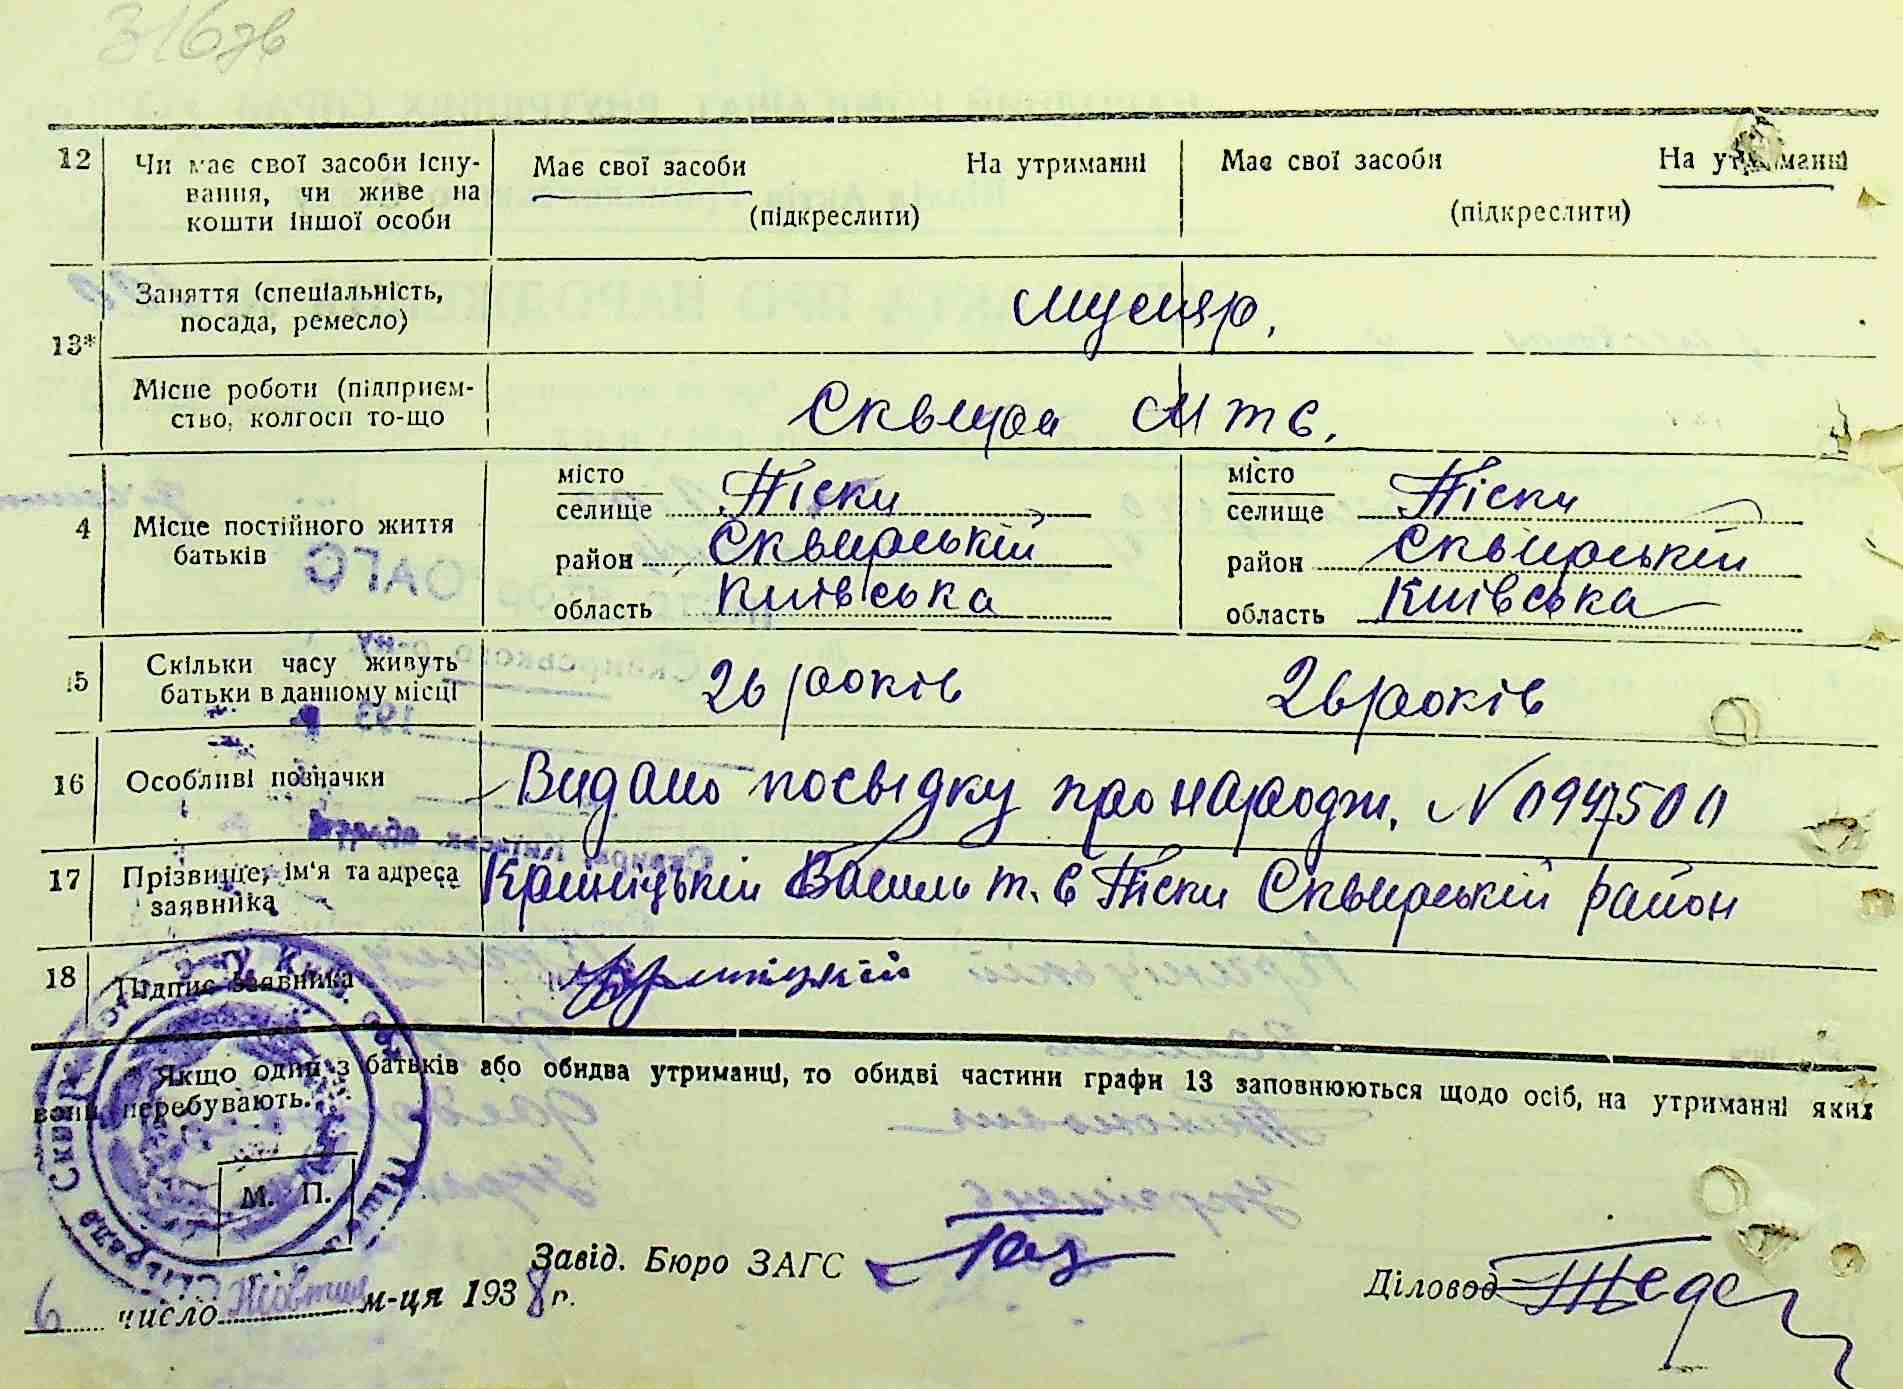 316зв
12 Чи має свої засоби існу- Має свої засоби На утриманні Має свої засоби На утриманні
вання, чи живе на (підкреслити) (підкреслити)
кошти іншої особи
13* Заняття (спеціальність,
посада, ремесло)
Місце роботи (підприєм- Сквира МТС.
ство, колгосп то-що
4 Місце постійного життя батьків
місто Піски місто Піски
селище селище
район Сквирській район Сквирській
область Київська область Київська
15 Скільки часу живуть 26 років 26 років
батьки в данному місці
16 Особливі позначки Видано посвідку про народж. N 0947500
17 Прізвище, ім'я та адреса Криніцькій Василь т. с Піски Сквирській район
заявника
18 Підпис заявника
Якщо один з батьків або обидва утриманці, то обидві частини графи 13 заповнюються щодо осіб, на утриманні яких
вони перебувають.
М. П.
Завід. Бюро ЗАГС
Діловод
6 число Жовтня м-ця 1938 р.